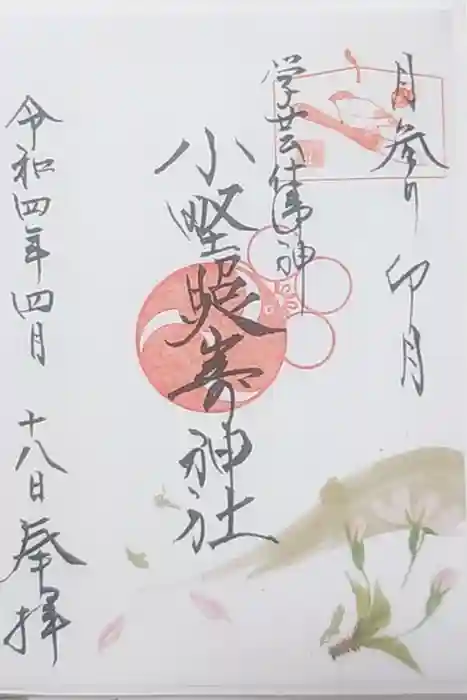 月参り 卯月
学芸上達の神
小野照崎神社
令和四年四月 十八日 奉拝